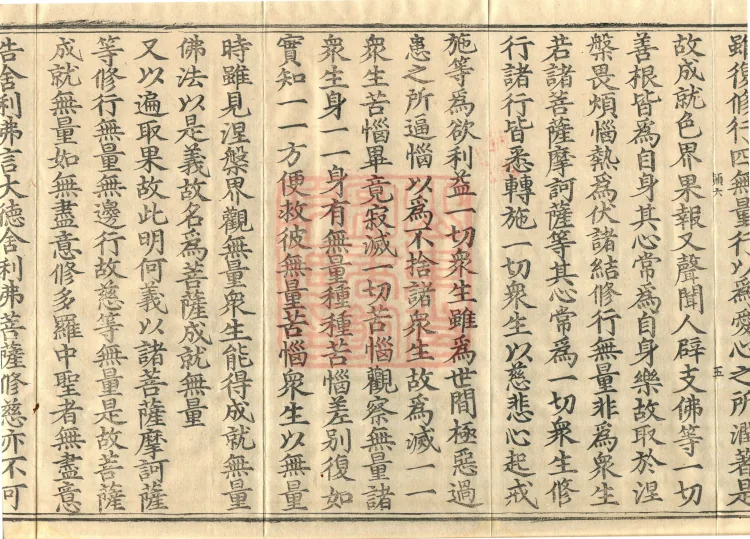 雖復修行四無量行以為愛心之所潤著是
故成就色界果報又聲聞人辟支佛等一切
善根皆為自身其心常為自身樂故取於涅
槃畏煩惱熱為伏諸結修行無量非為衆生
若諸菩薩摩訶薩等其心常為一切衆生修
行諸行皆悉轉施一切衆生以慈悲心起戒
施等為欲利益一切衆生雖為世間極惡過
患之所逼惱以為不捨諸衆生故為滅一一
衆生苦惱畢竟寂滅一切苦惱觀察無量諸
衆生身一一身有無量種種苦惱差別復如
實知一一方便救彼無量苦惱衆生以無量
時雖見涅槃界觀無量衆生能得成就無量
佛法以是義故名為菩薩成就無量
又以遍取果故此明何義以諸菩薩摩訶薩
等修行無量無邊行故慈等無量是故菩薩
成就無量如無盡意修多羅中聖者無盡意
告舍利弗言大德舍利弗菩薩修慈亦不可
五